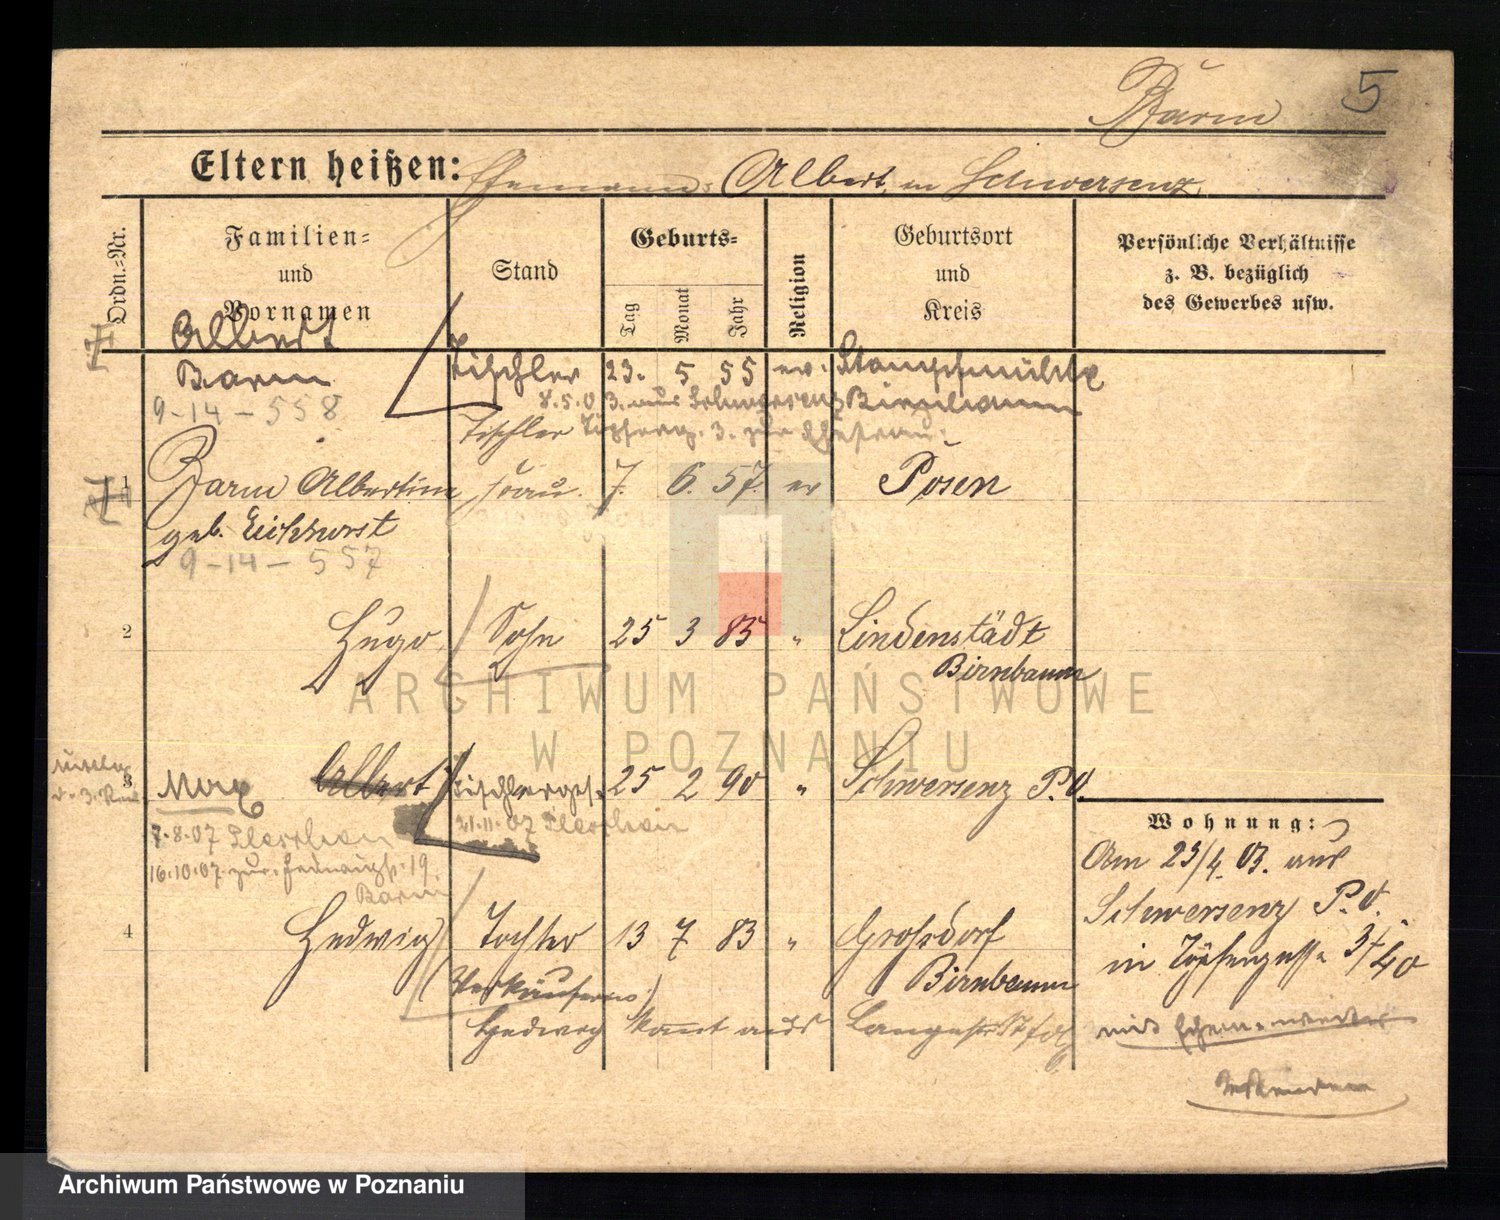 5
Barm
Eltern heißen: Ehemann: Albert, in Schwersenz
Ordn.=Nr.
Familien=
und
Vornamen
Stand
Geburts=
Tag
Monat
Jahr
Religion
Geburtsort
und
Kreis
Persönliche Verhältnisse
z. B. bezüglich
des Gewerbes usw.
Albert
Barm
Tischler 23. 5 55 ev. Stampfmühle
8.5.03. aus Schwersenz Birnbaum
9-14-558
Tischler 3. zur Ehefrau
1 Barm Albertine Frau. 7. 6. 57. ev Posen
geb. Eichhorst
9-14-557
2 Hugo Sohn 25 3 85 " Lindenstädt
Birnbaum
3 Max Albert Tischlerges. 25 2 90 " Schwersenz P.O.
7.8.07
21.11.07
16.10.07 zur
Barm
4 Hedwig Tochter 13 7 83 " Großdorf
(Verkäuferin) Birnbaum
Hedwig kommt aus
Wohnung:
Am 23/4. 03. aus
Schwersenz P.O.
in Töpfergasse 3/40
ARCHIWUM PAŃSTWOWE
W POZNANIU
Archiwum Państwowe w Poznaniu